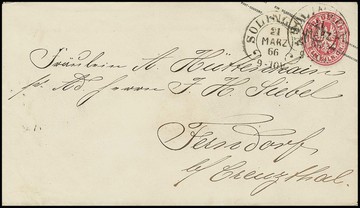 SOLINGEN
21
MARZ
66
9-10V.
Fräulein A. Hüttenhain
p. Ad. Herrn F. H. Siebel
Ferndorf
b/ Creuzthal.